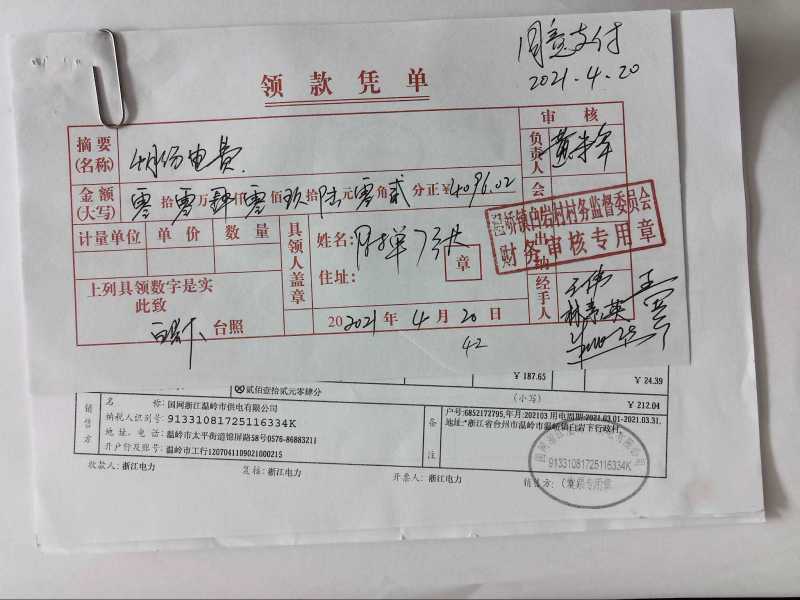 同意支付
2021.4.20
领款凭单
摘要(名称) 4月份电费 审核
负责人
金额(大写) 零拾零万肆仟零佰玖拾陆元零角贰分正¥4096.02 会
计量单位 单价 数量 具领人盖章 姓名: 附单7张 章
住址:
温峤镇白岩村村务监督委员会
财务审核专用章
出纳
上列具领数字是实
此致
台照
经手人 林素英
20 2021年4月20日
42
¥187.65 ¥24.39
贰佰壹拾贰元零肆分 (小写) ¥212.04
销售方 名称: 国网浙江温岭市供电有限公司
纳税人识别号: 91331081725116334K
地址、电话: 温岭市太平街道锦屏路58号0576-86883211
开户行及账号: 温岭市工行1207041109021000215
备注 户号:6852172795,年月:202103 用电周期:2021.03.01-2021.03.31,
地址:浙江省台州市温岭市温峤镇白岩下行政村,
收款人: 浙江电力 复核: 浙江电力 开票人: 浙江电力 销售方: (章)
91331081725116334K
发票专用章